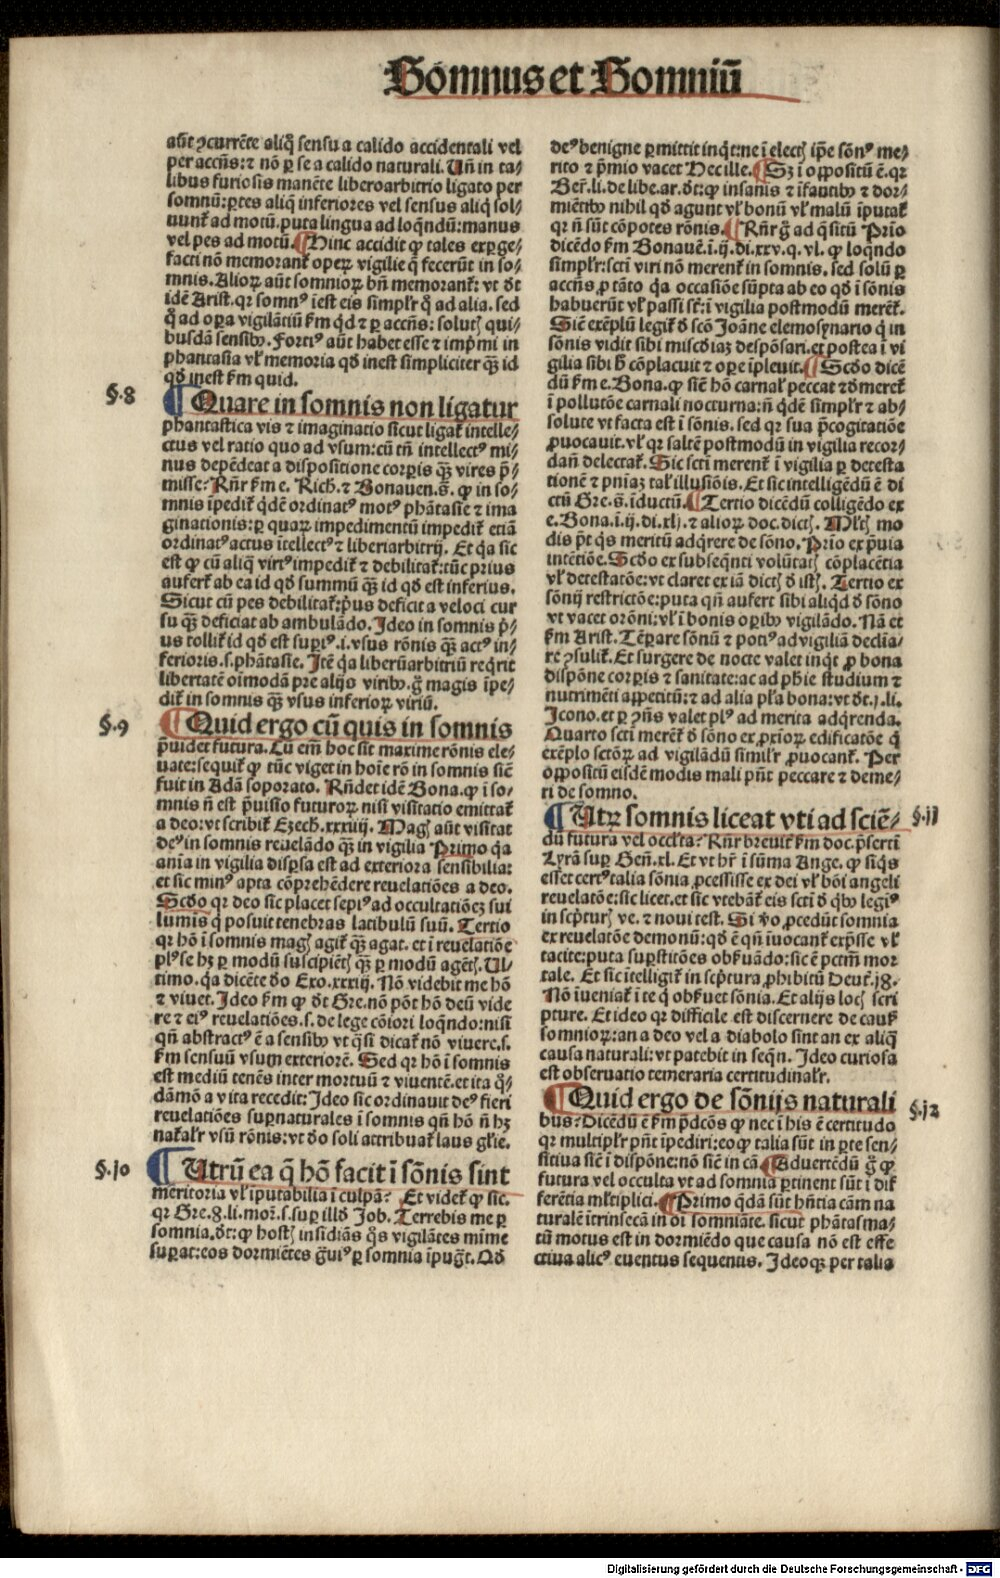 Somnus et Somniū
aūt ꝯcurrēte aliq̄ sensu a calido accidentali vel
per accn̄s: ⁊ nō ꝑ se a calido naturali. Un̄ in ta⸗
libus furiosis manēte liberoarbitrio ligato per
somnū: ꝑtes aliq̄ inferiores vel sensus aliq̄ sol⸗
uunt̄ ad motū. puta lingua ad loq̄ndū: manus
vel pes ad motū. ¶ Hinc accidit ꝙ tales exꝑge⸗
facti nō memorant̄ oꝑeꝝ vigilie q̄ fecerūt in so⸗
mnis. Alioꝝ aūt somnioꝝ bn̄ memorant̄: vt d̄t
idē Arist. qꝛ somnꝰ īest eis simpl̄r q̄ ad alia. sed
q̄ ad oꝑa vigilātiū s̄m q̄d ⁊ ꝑ accn̄s: solutꝭ qui⸗
busdā sensibꝰ. Fortiꝰ aūt habet esse ⁊ imp̄mi in
phantasia vl̄ memoria qd̄ inest simpliciter q̄ꝫ id
qd̄ inest s̄m quid.
§.8
¶ Quare in somnis non ligatur
phantastica vis ⁊ imaginatio sicut ligat̄ intelle⸗
ctus vel ratio quo ad vsum: cū tn̄ intellectꝰ mi⸗
nus depēdeat a dispositione corꝑis q̄ꝫ vires p̄⸗
misse? Rn̄r s̄m e. Rich. ⁊ Bonauen. s̄. ꝙ in so⸗
mnis īpedit̄ q̄dē ordinatꝰ motꝰ phātasie ⁊ ima
ginationis: ꝑ quaꝝ impedimentū impedit̄ etiā
ordinatꝰ actus ītellectꝰ ⁊ liberiarbitrij. Et q̇a sic
est ꝙ cū aliq̄ virtꝰ impedit̄ ⁊ debilitat̄: tūc prius
aufert̄ ab ea id qd̄ summū q̄ꝫ id qd̄ est inferius.
Sicut cū pes debilitat̄: p̄us deficit a veloci cur
su q̄ꝫ deficiat ab ambulādo. Ideo in somnis p̄⸗
us tollit̄ id qd̄ est suꝑiꝰ. i. vsus rōnis q̄ꝫ actꝰ in⸗
ferioris. s. phātasie. Itē q̇a liberūarbitriū reqͥrit
libertatē oīmodā pre alijs viribꝰ. g̊ magis īpe⸗
dit̄ in somnis q̄ꝫ vsus inferioꝝ viriū.
§.9
¶ Quid ergo cū quis in somnis
p̄uidet futura. Cū em̄ hoc sit maxime rōnis ele⸗
uate: sequit̄ ꝙ tūc viget in hoīe rō in somnis sic̄
fuit in Adā soporato. Rn̄det idē Bona. ꝙ ī so⸗
mnis n̄ est p̄uisio futuroꝝ nisi visitatio emittat̄
a deo: vt scribit̄ Ezech. xxxiiij. Magꝭ aūt visitat
deꝰ in somnis reuelādo q̄ꝫ in vigilia Primo q̇a
an̄ia in vigilia disꝑsa est ad exteriora sensibilia:
et sic minꝰ apta cōprehēdere reuelatiōes a deo.
Scd̄o qꝛ deo sic placet sepiꝰ ad occultatiōeꝫ sui
lumīs q̇ posuit tenebras latibulū suū. Tertio
qꝛ hō ī somnis magꝭ agit̄ q̄ꝫ agat. et ī reuelatiōe
plꝰ se hꝫ ꝑ modū suscipiētꝭ q̄ꝫ ꝑ modū agētꝭ. Ul⸗
timo. q̇a dicēte d̄o Exo. xxxiij. Nō videbit me hō
⁊ viuet. Ideo s̄m ꝙ d̄t Gre. nō pōt hō deū vide
re ⁊ eiꝰ reuelatiōes. s. de lege cōiori loq̄ndo: nisi
qn̄ abstractꝰ ē a sensibꝰ vt q̄si dicat̄ nō viuere. s.
s̄m sensuū vsum exteriorē. Sed qꝛ hō ī somnis
est mediū tenēs inter mortuū ⁊ viuentē. et ita q̊⸗
dāmō a vita recedit: Ideo sic ordinauit deꝰ fieri
reuelatiōes suꝑnaturales ī somnis qn̄ hō n̄ hꝫ
nat̄al̄r vsū rōnis: vt d̄o soli attribuat̄ laus gl̄ie.
§.10
¶ Utrū ea q̄ hō facit ī sōnis sint
meritoria vl̄ īputabilia ī culpā? Et videt̄ ꝙ sic.
qꝛ Gre. 8. li. moꝝ. s. suꝑ illd̄ Job. Terrebis me ꝑ
somnia. d̄t: ꝙ hostꝭ insidiās q̊s vigilātes mīme
suꝑat: eos dormiētes g̊uiꝰ ꝑ somnia īpug̊t. Qd̄
deꝰ benigne ꝑmittit inq̇t: ne ī electꝭ ip̄e sōnꝰ me⸗
rito ⁊ p̄mio vacet Hec ille. ¶ Sꝫ ī oppositū ē. qꝛ
Ber̄. li. de libe. ar. d̄t: ꝙ insanis ⁊ īfantibꝰ ⁊ dor⸗
miētibꝰ nihil qd̄ agunt vl̄ bonū vl̄ malū īputat̄
qꝛ n̄ sūt cōpotes rōnis. ¶ Rn̄r g̊ ad q̄sitū Prīo
dicēdo s̄m Bonauē. ī. ij. di. xxv. q. vl. ꝙ loq̄ndo
simpl̄r: scti viri nō merent̄ in somnis. sed solū ꝑ
accn̄s ꝓ tāto q̇a occasiōe sūpta ab eo qd̄ ī sōnis
habuerūt vl̄ passi st̄: ī vigilia postmodū meret̄.
Sic̄ exēplū legit̄ d̄ scō Joāne elemosynario q̇ in
sōnis vidit sibi misc̄diaꝫ despōsari. et postea ī vi
gilia sibi h̄ cōplacuit ⁊ oꝑe īpleuit. ¶ Scd̄o dicē
dū s̄m e. Bona. ꝙ sic̄ hō carnal̄ peccat ⁊ d̄meret̄
ī pollutōe carnali nocturna: n̄ q̇dē simpl̄r ⁊ ab⸗
solute vt facta est ī sōnis. sed qꝛ sua p̄cogitatiōe
ꝓuocauit. vl̄ qꝛ saltē postmodū in vigilia recor⸗
dan̄ delectat̄. Sic scti merent̄ ī vigilia ꝑ detesta
tionē ⁊ pn̄iaꝫ tal̄ illusiōis. Et sic intelligēdū ē di
ctū Gre. s̄. īductū. ¶ Tertio dicēdū colligēdo ex
e. Bona. ī. ij. di. xlj. ⁊ alioꝝ doc. dictꝭ. Ml̄tꝭ mo
dis p̄t q̇s meritū adq̄rere de sōno. Prīo ex p̄uia
intētiōe. Scd̄o ex subseq̄nti volūtatꝭ cōplacētia
vl̄ detestatōe: vt claret ex iā dictꝭ d̄ istꝭ. Tertio ex
sōnij restrictōe: puta qn̄ aufert sibi aliq̇d d̄ sōno
vt vacet orōni: vl̄ ī bonis oꝑibꝰ vigilādo. Nā et
s̄m Arist. Tēꝑare sōnū ⁊ potiꝰ ad vigiliā declīa⸗
re ꝯsulit̄. Et surgere de nocte valet inq̇t ꝓ bona
dispōne corꝑis ⁊ sanitate: ac ad ph̄ie studium ⁊
nutrimēti appetitū: ⁊ ad alia pl̄a bona: vt d̄t. 1. li.
Icono. et ꝑ ꝯn̄s valet plꝰ ad merita adq̇renda.
Quarto scti meret̄ d̄ sōno ex ꝓxīoꝝ edificatōe q̇
exēplo sctoꝝ ad vigilādū simil̄r ꝓuocant̄. Per
oppositū eisdē modis mali pn̄t peccare ⁊ deme⸗
ri de somno.
§.11
¶ Utꝝ somnis liceat vti ad sciē⸗
dū futura vel occl̄ta? Rn̄r breuit̄ s̄m doc. p̄serti
Lyrā suꝑ Gen̄. xl. Et vt hr̄ ī sūma Ange. ꝙ siq̇s
esset certꝰ talia sōnia ꝓcessisse ex dei vl̄ boī angeli
reuelatōe: sic licet. et sic vtebāt̄ eis scti d̄ q̇bꝰ legiꝰ
in scpturꝭ ve. ⁊ noui test. Si v̊o ꝓcedūt somnia
ex reuelatōe demonū: qd̄ ē qn̄ īuocant̄ exp̄sse vl̄
tacite: puta suꝑstitōes obs̄uādo: sic ē pctm̄ mor
tale. Et sic ītelligit̄ in scptura ꝓhibitū Deut̄. 18.
Nō īueniat̄ ī te q̇ obs̄uet sōnia. Et alijs locꝭ scri
pture. Et ideo qꝛ difficile est discernere de causꝭ
somnioꝝ: an a deo vel a diabolo sint an ex aliq̄
causa naturali: vt patebit in seqn̄. Ideo curiosa
est obseruatio temeraria certitudinal̄r.
§.12
¶ Quid ergo de sōnijs naturali
bus? Dicēdū ē s̄m p̄dcōs ꝙ nec ī his ē certitudo
qꝛ multipl̄r pn̄t īpediri: eo ꝙ talia sūt in ꝑte sen⸗
sitiua sic̄ ī dispōne: nō sic̄ in cā ¶ Aduertēdū g̊ ꝙ
futura vel occulta vt ad somnia ꝑtinent sūt ī dif
ferētia ml̄tiplici. ¶ Primo q̇dā sūt hn̄tia cām na
turalē ītrinsecā in oī somniāte. sicut phātasma⸗
tū motus est in dormiēdo que causa nō est effe
ctiua alicꝰ euentus sequentis. Ideoqꝫ per talia
Digitalisierung gefördert durch die Deutsche Forschungsgemeinschaft - DFG